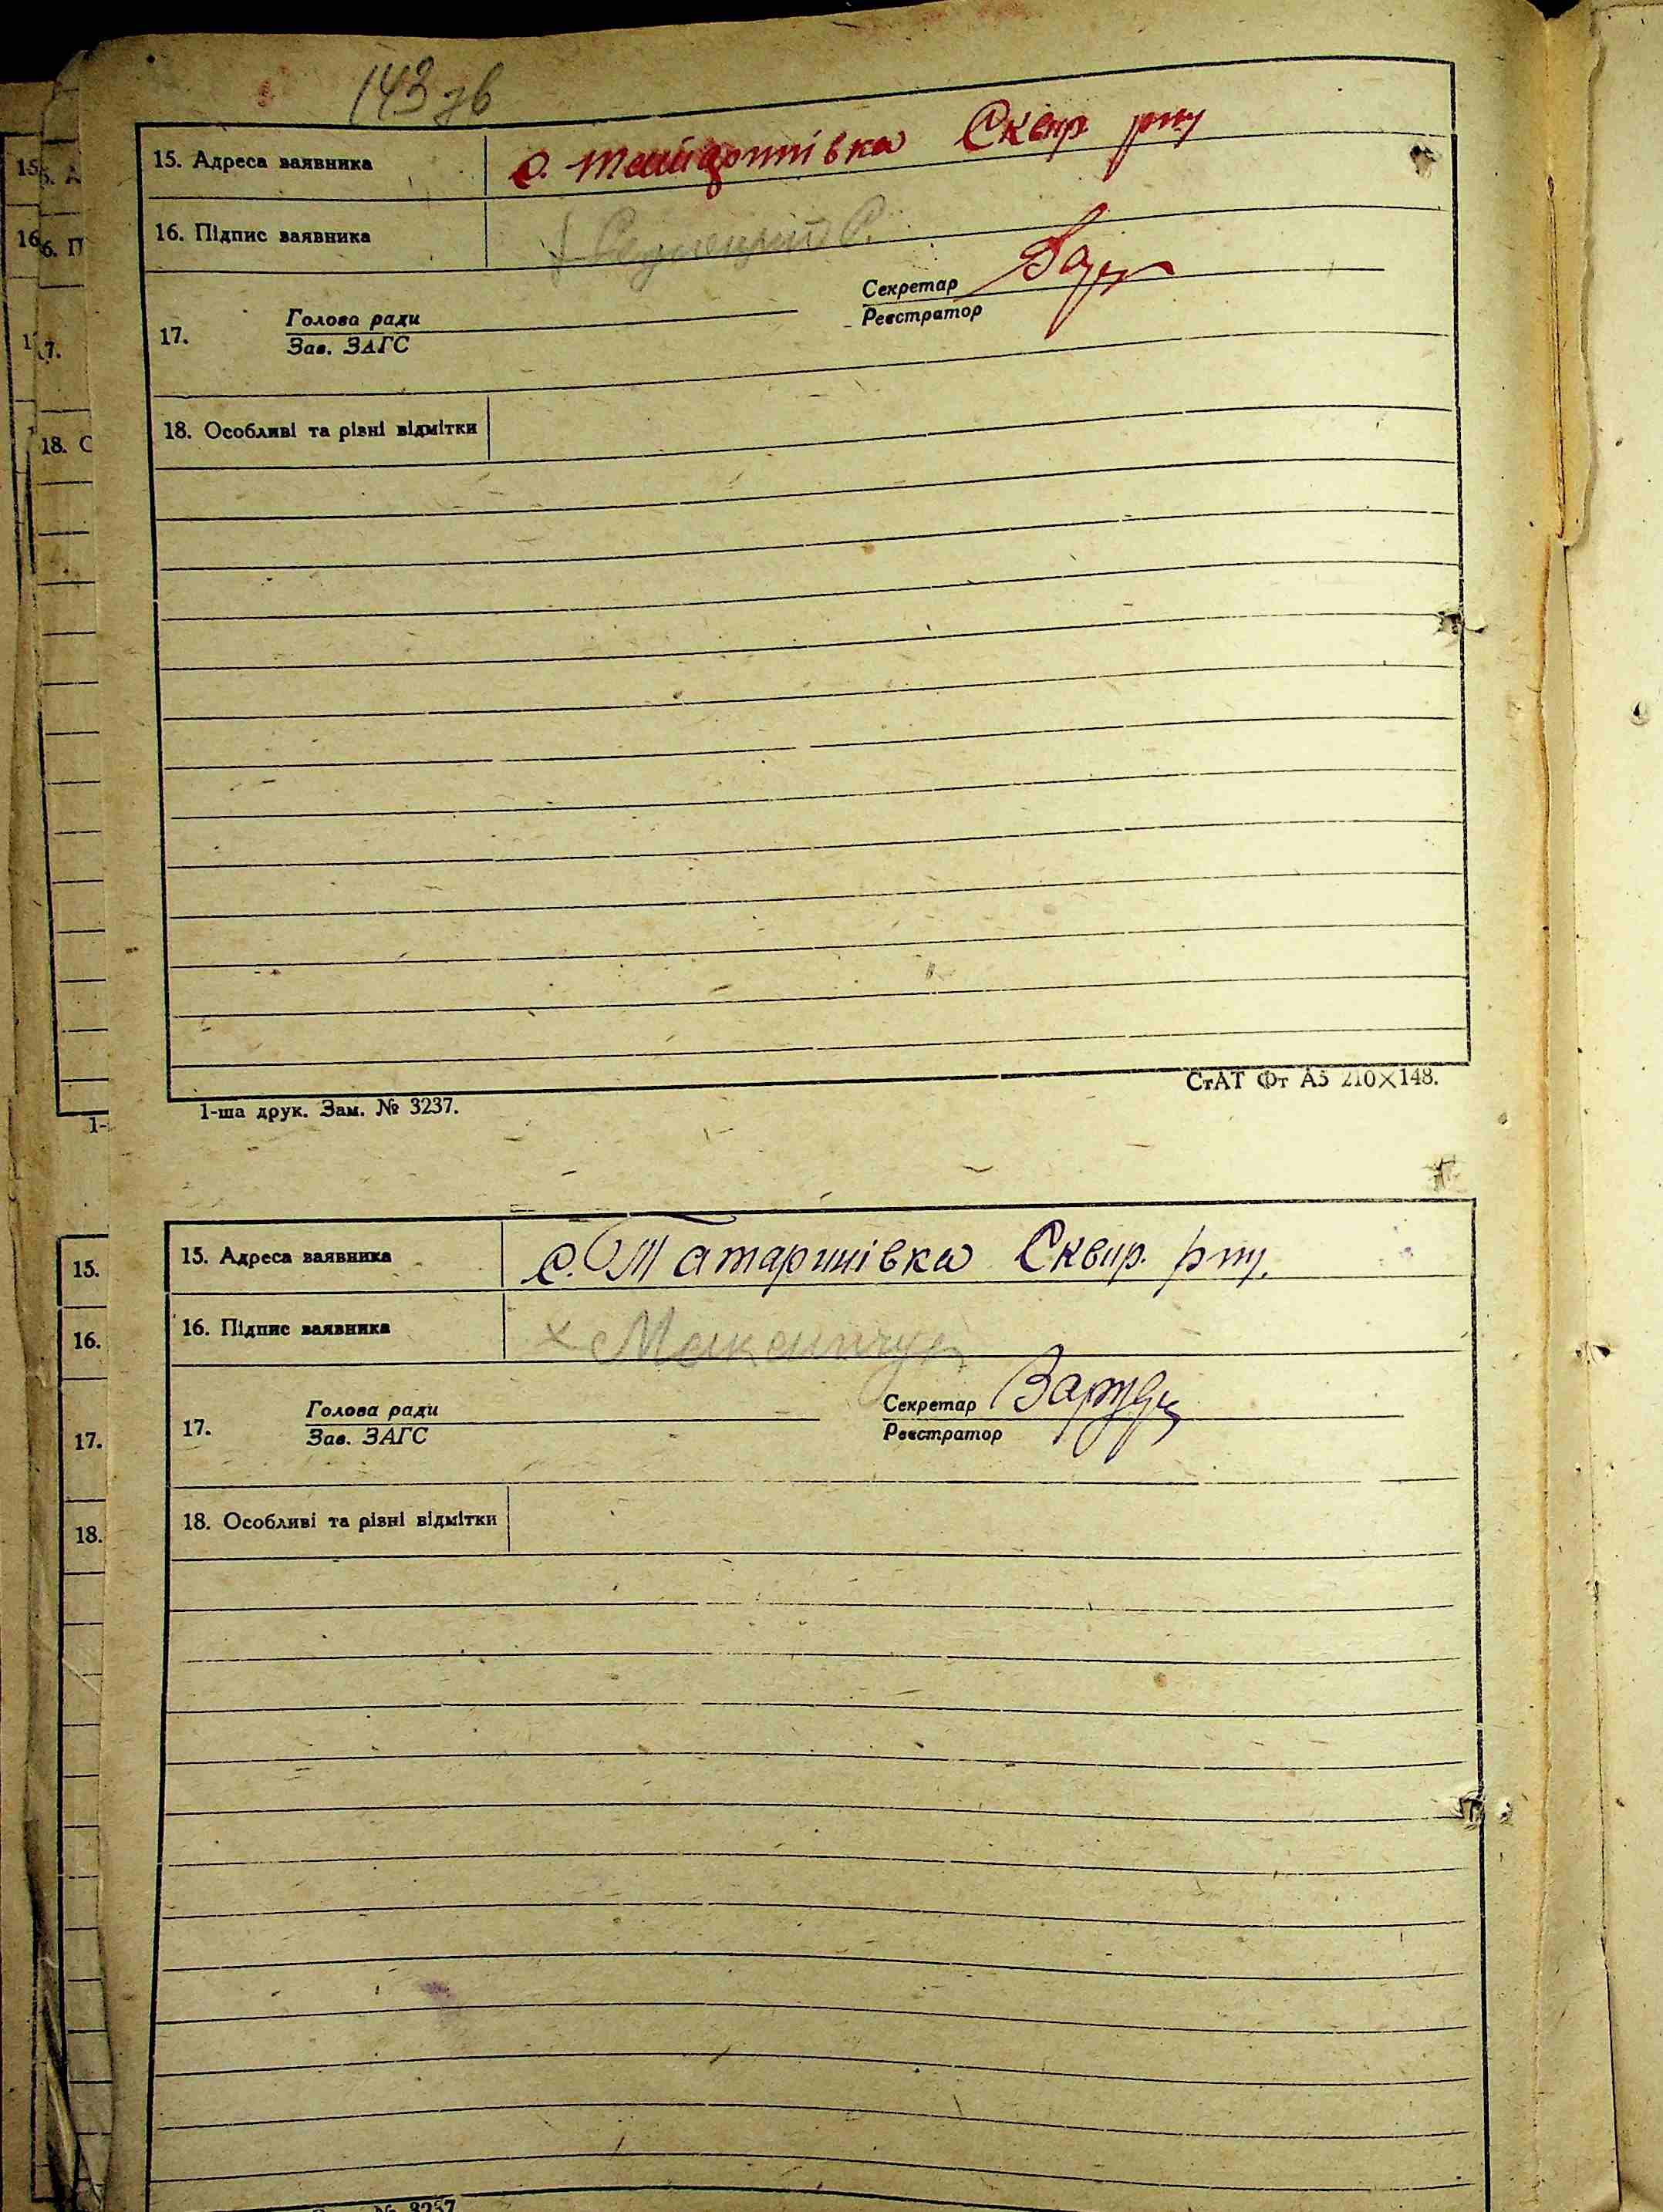 143 зв
15. Адреса заявника с. Татаринівка Сквир. р-ну
16. Підпис заявника
Секретар
Реєстратор
17. Голова ради
Зав. ЗАГС
18. Особливі та різні відмітки
СтАТ Фт А5 210×148.
1-ша друк. Зам. № 3237.
15. Адреса заявника с. Татаринівка Сквир. р-ну.
16. Підпис заявника х
17. Голова ради
Зав. ЗАГС
Секретар
Реєстратор
18. Особливі та різні відмітки
№ 3237
15.
16.
17.
18.